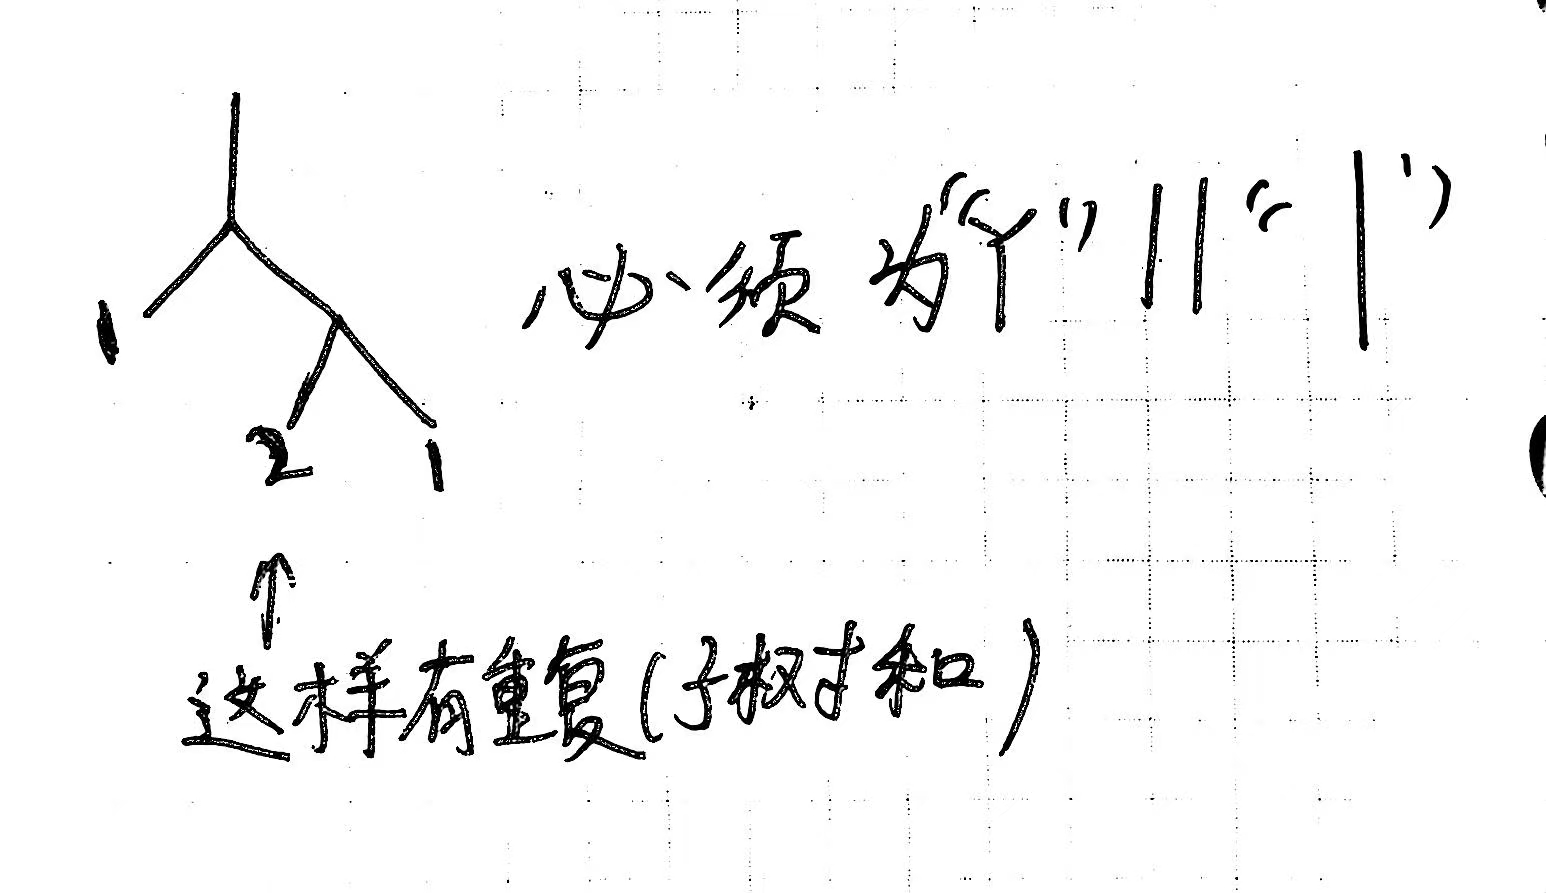 必须为“Y” || “|”
1
2 1
这样有重复(子树和)